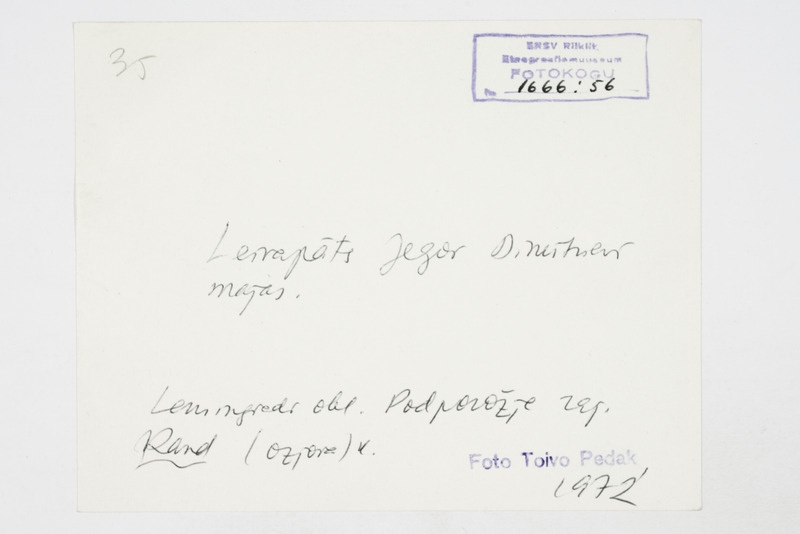 35
ENSV Riiklik
Etnograafiamuuseum
FOTOKOGU
1666:56
Leivapäts Jegor Dimitrievi
majas.
Leningradi obl. Podporožje raj.
Rand (Ozjora) k.
Foto Toivo Pedak
1972